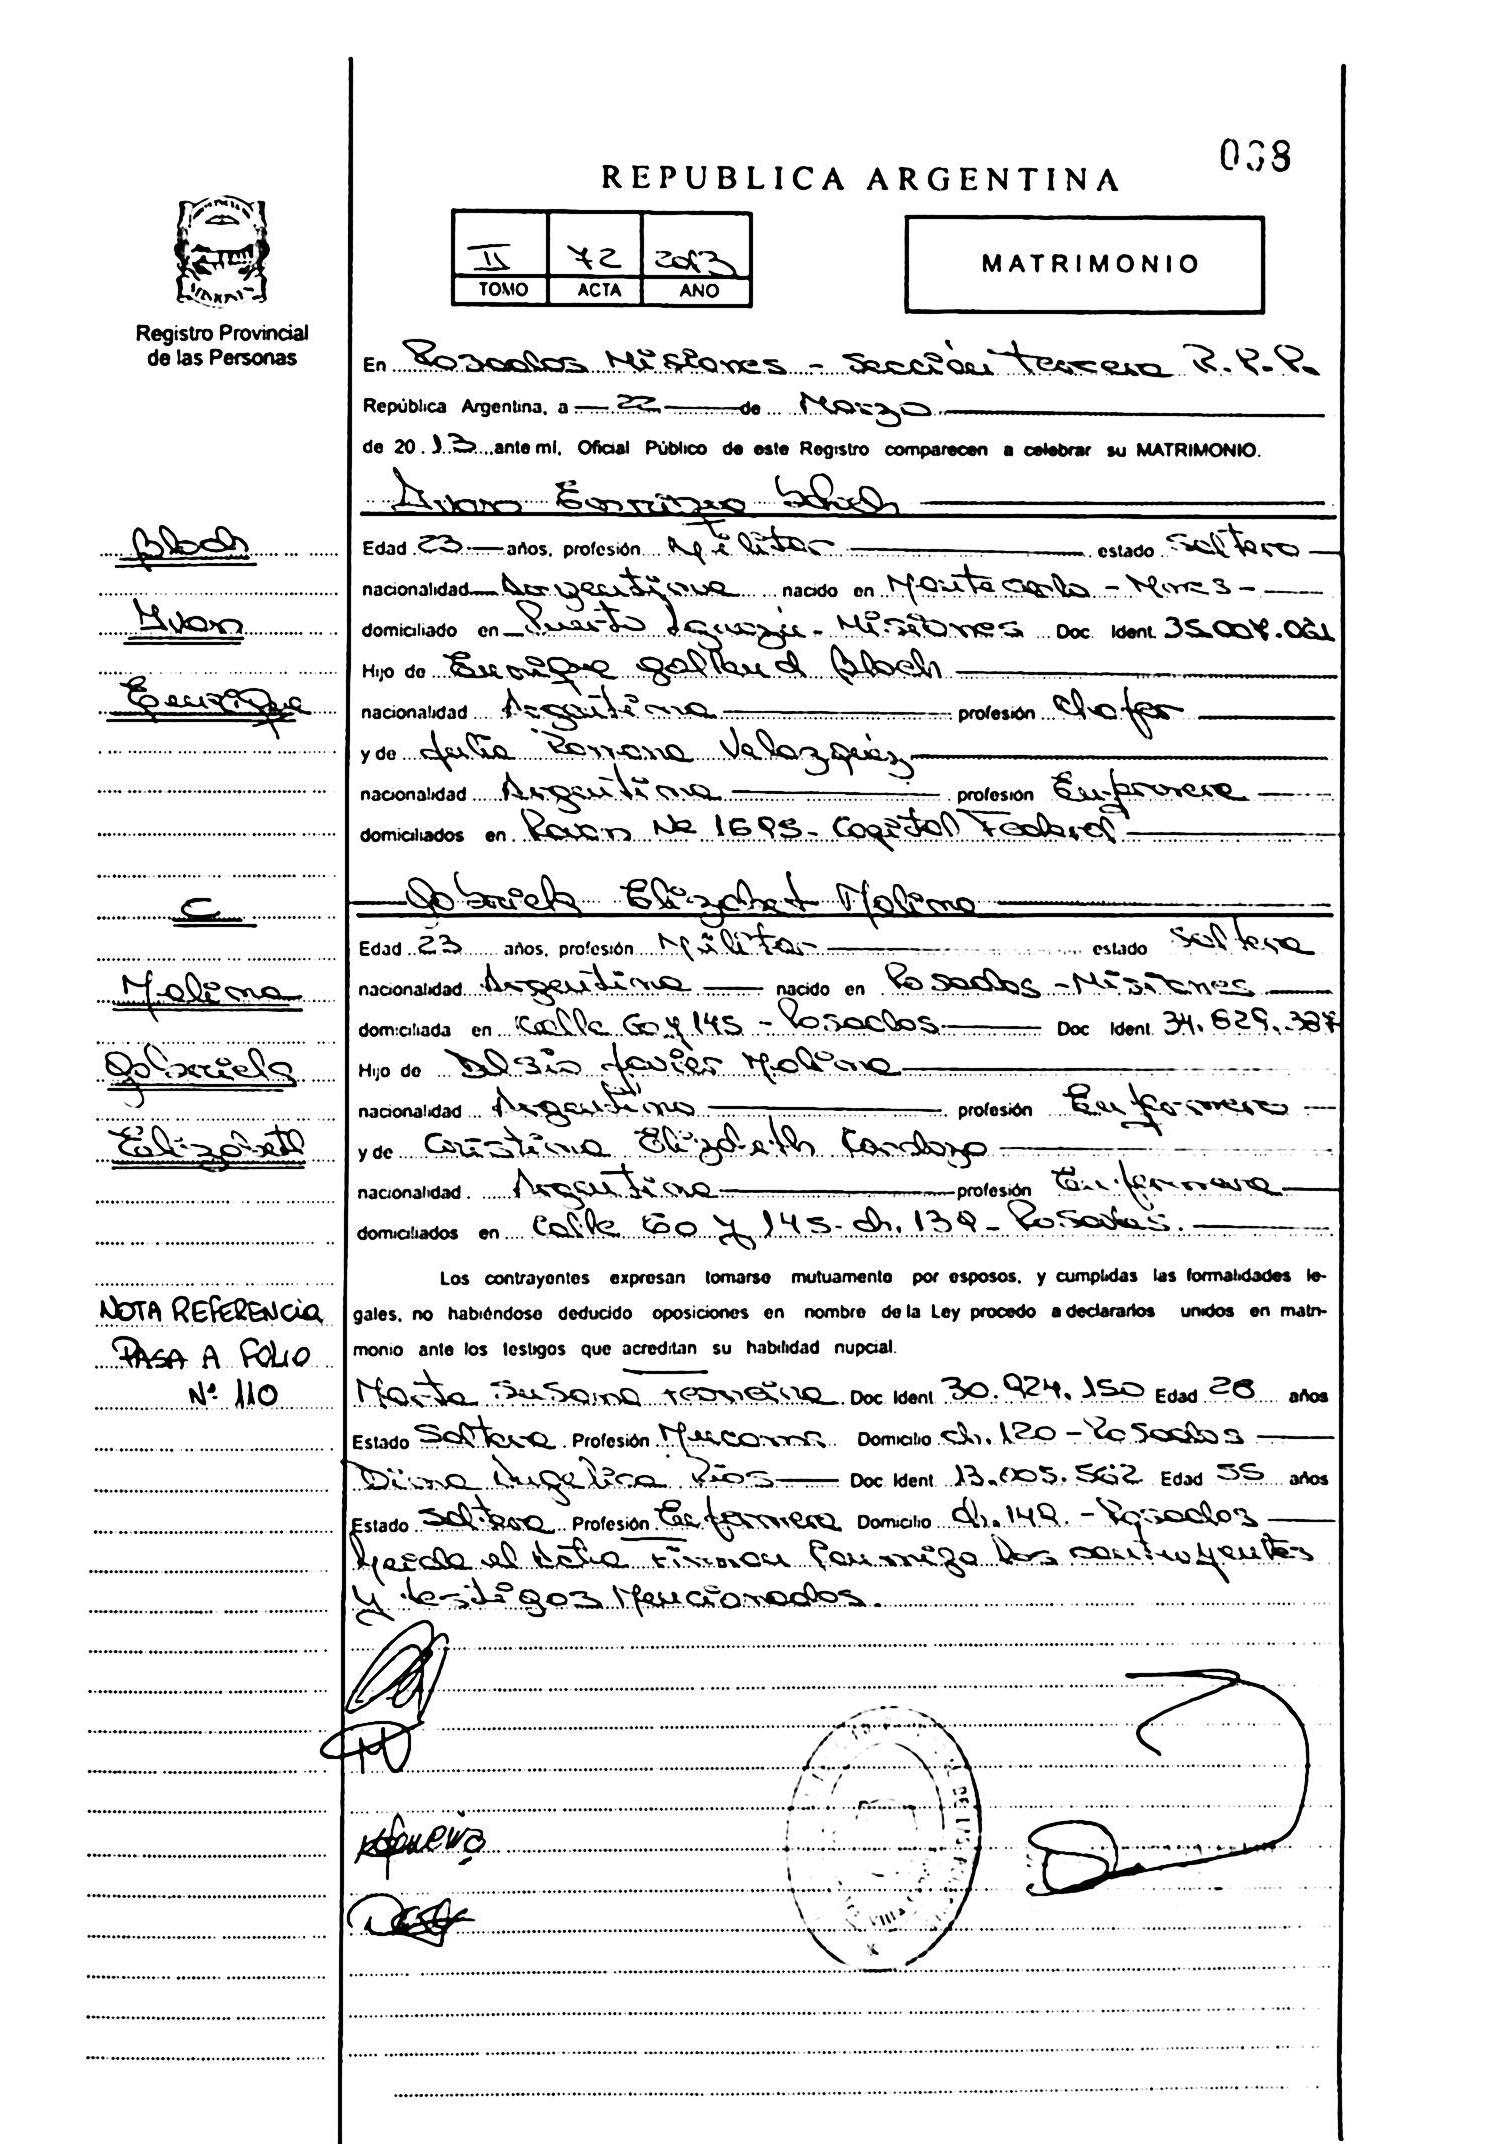 038
REPUBLICA ARGENTINA
II 72 2013
TOMO ACTA AÑO
MATRIMONIO
Registro Provincial
de las Personas
En Posadas Misiones - Sección tercera R.P.P.
República Argentina, a 22 de Marzo
de 2013 ante mi, Oficial Público de este Registro comparecen a celebrar su MATRIMONIO.
Ivan Enrique Bloch
Bloch
Edad 23 años, profesión Militar estado Soltero
nacionalidad Argentina nacido en Montecarlo - Mnes -
Ivan
domiciliado en Puerto Iguazú - Misiones Doc. Ident. 35.007.061
Hijo de Enrique Bloch
Enrique
nacionalidad Argentina profesión Chofer
y de Julia Ramona Velazquez
nacionalidad Argentina profesión Enfermera
domiciliados en Pavon Nº 1695 - Capital Federal
C
Gabriela Elizabet Molina
Edad 23 años, profesión Militar estado Soltera
Molina
nacionalidad Argentina nacido en Posadas - Misiones
domiciliada en Calle 60 y 145 - Posadas Doc Ident. 34.829.387
Gabriela
Hijo de Javier Molina
nacionalidad Argentina profesión Enfermero
Elizabeth
y de Cristina Elizabeth Cardozo
nacionalidad. Argentina profesión Enfermera
domiciliados en Calle 60 y 145 - ch. 139 - Posadas.
Los contrayentes expresan tomarse mutuamente por esposos, y cumplidas las formalidades le-
NOTA REFERENCIA
gales, no habiéndose deducido oposiciones en nombre de la Ley procedo a declararlos unidos en matri-
PASA A FOLIO
monio ante los testigos que acreditan su habilidad nupcial.
Nº 110
Marta Susana Ferreira Doc Ident 30.924.150 Edad 28 años
Estado Soltera Profesión Mucama Domicilio ch. 120 - Posadas
Angelica Rios Doc Ident 13.005.562 Edad 55 años
Estado Soltera Profesión Enfermera Domicilio ch. 149 - Posadas
Leida el Acta Firman Conmigo los contrayentes
y testigos Mencionados.